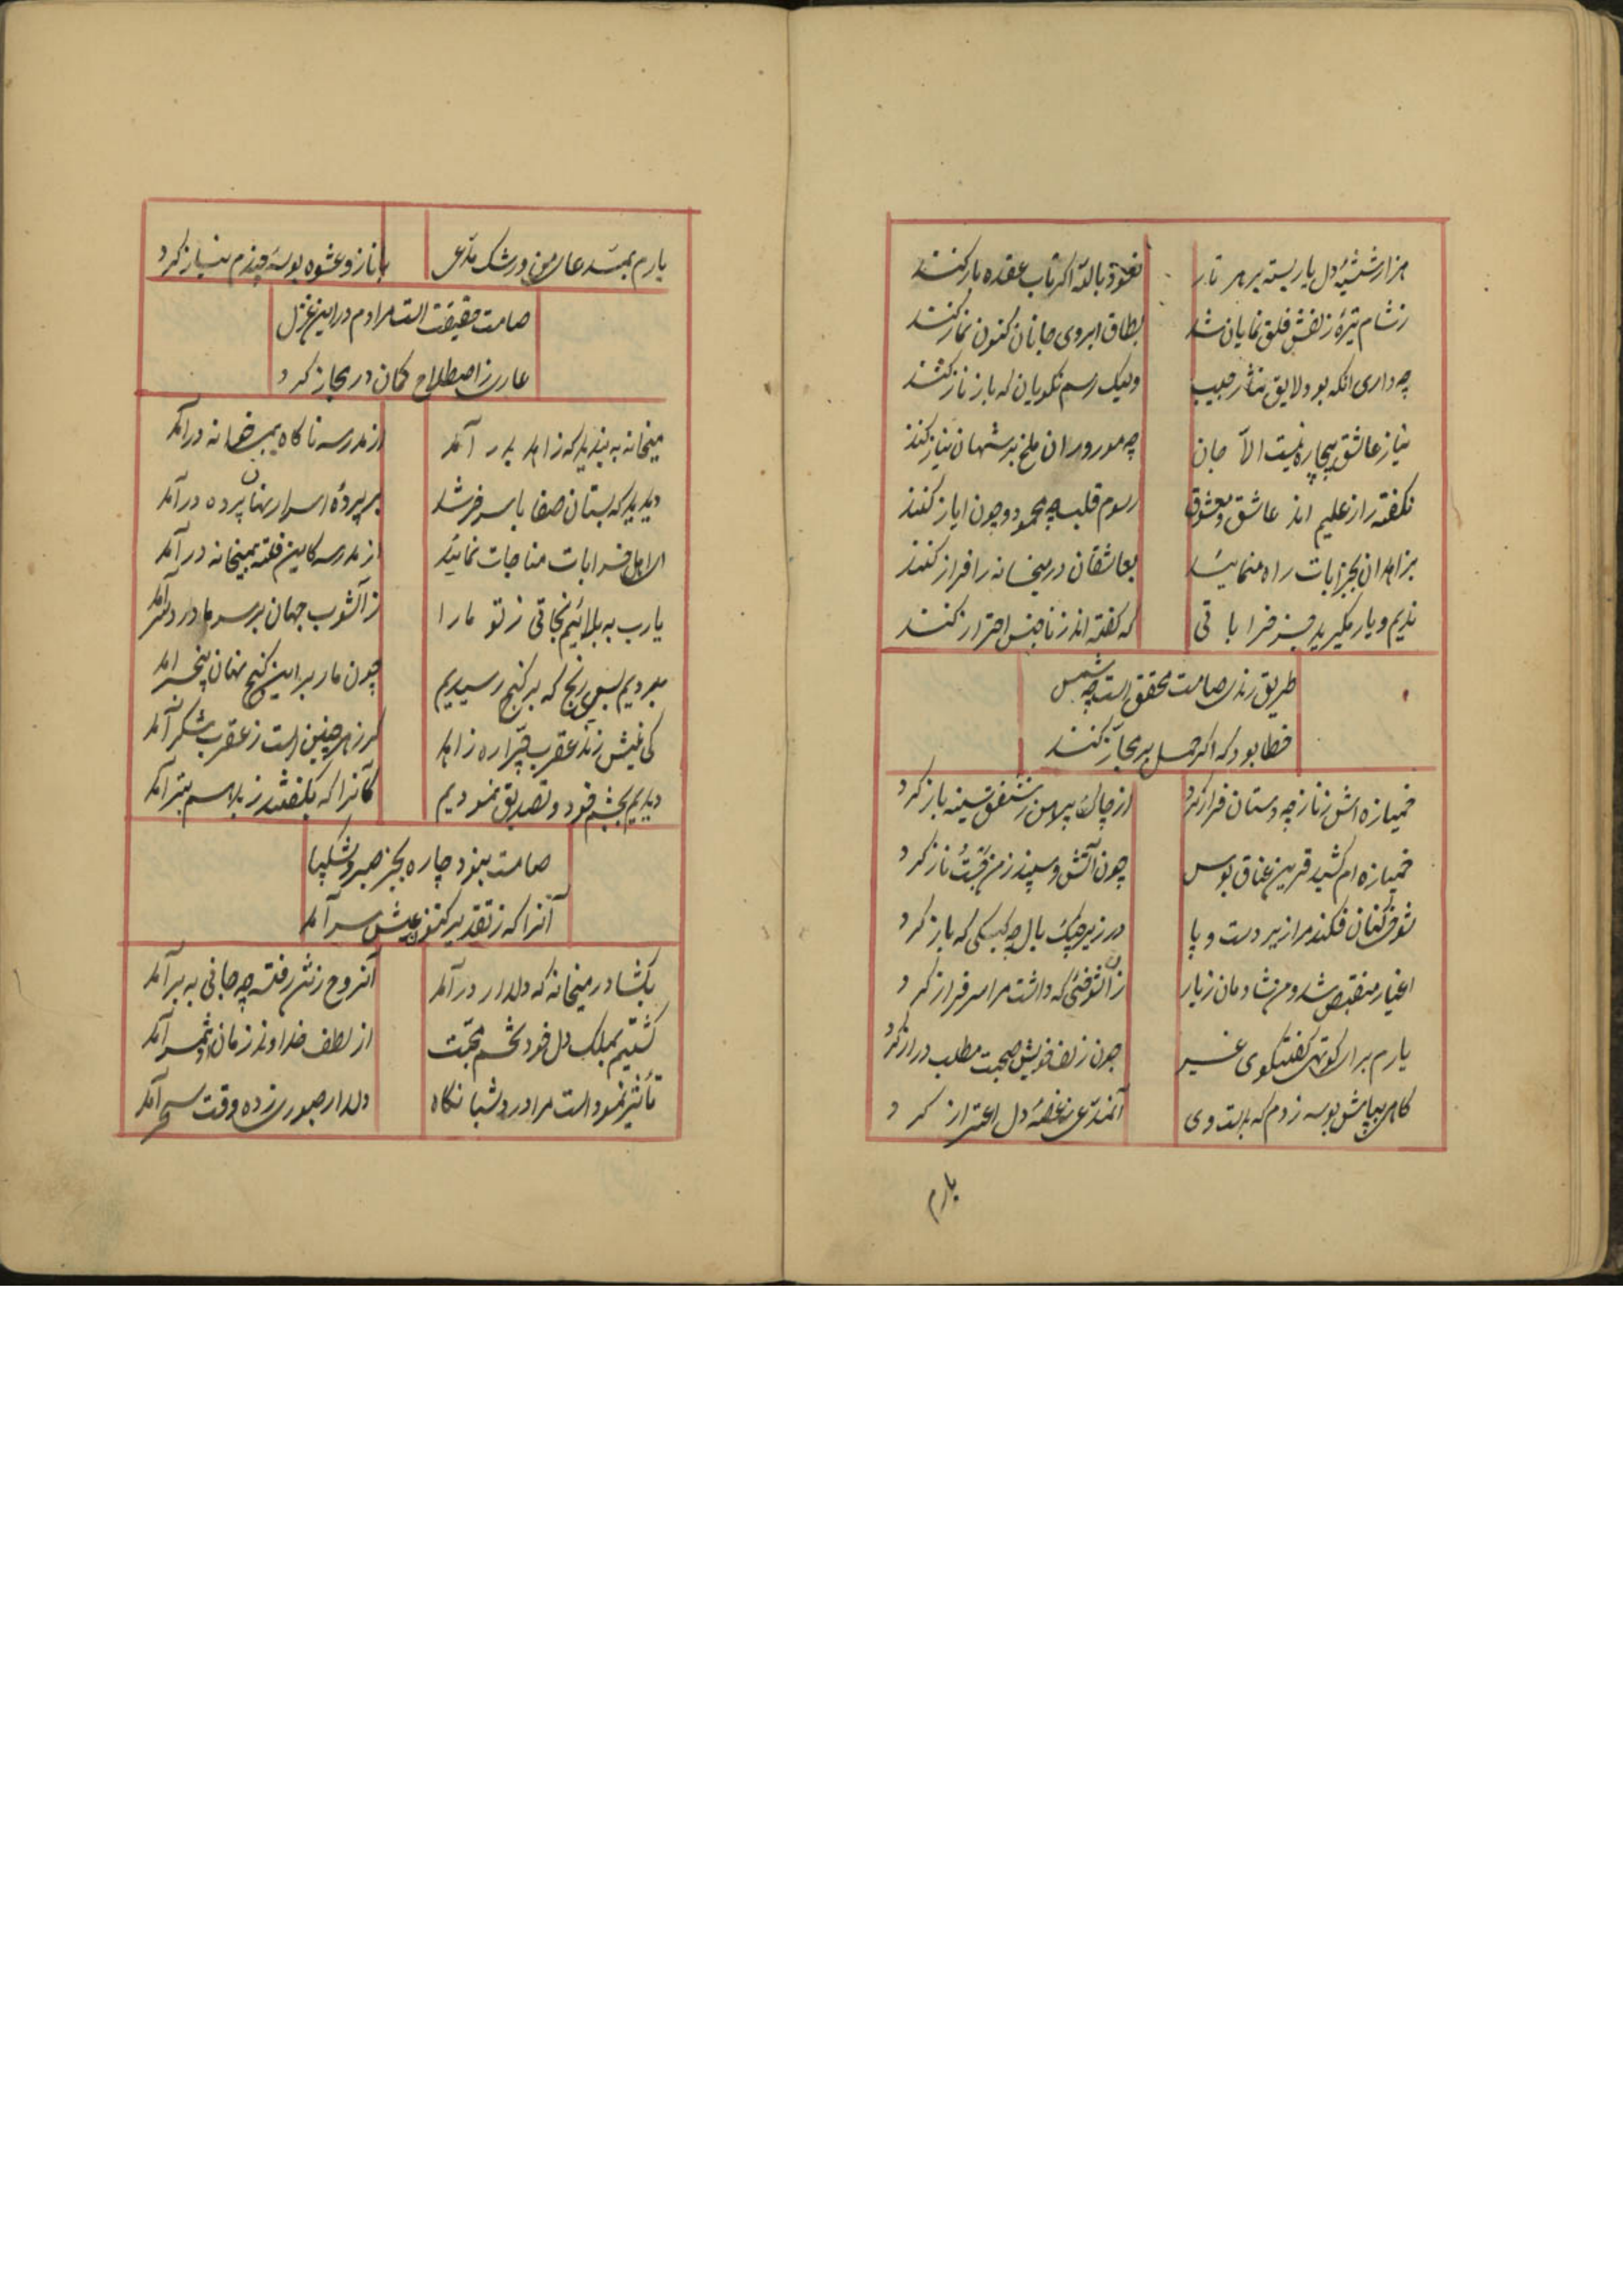 هزار شیشهٔ دل یار بسته بر هر تار نعوذ بالله اگر تاب عقده باز کنند
ز شام تیرهٔ زلفش فلق نمایان شد بطاق ابروی جانان کنون نماز کنند
چه داری انکه بود لایق نثار حبیب ولیک رسم نکویان که باز ناز کنند
نیاز عاشق بیچاره نیست الّا جان چه مور و ران ملخ بر شهان نیاز کنند
نگفته راز علیم اند عاشق و معشوق رسوم قلب چه محمود و چون ایاز کنند
بزاهدان بخرابات راه منمائید بعاشقان در میخانه را فراز کنند
ندیم و یار مگیرید جز خراباتی که گفته اند ز ناجنس احتراز کنند
طریق رندی صامت محقق است چه شمس
خطا بود که اگر حمل بر مجاز کنند
خمیازه اش ز ناز چه دستان فراز کرد از چاک پیرهن ز شفق سینه باز کرد
خمیازه ام کشید قرین عناق بوس چون آتش و سپند ز من جَست ناز کرد
شوخی کنان فکند مرا زیر دست و پا در زیر چنگ بال چه کبکی که باز کرد
اغیار منقبض شد و من شادمان ز یار زان شوخئی که داشت مرا سرفراز کرد
یارم برای کوتهی گفتگوی غیر چون زلف خویش صحبت مطلب دراز کرد
گاهی بپایش بوسه زدم گه بدست وی آنمدّعی ز غصهٔ دل اعتراز کرد
یارم
یارم بمسند عالی من و رشک مدّعی با ناز و عشوه بوسهٔ چندم نیاز کرد
صامت حقیقت است مرادم در این غزل
عاری ز اصطلاح گمان در مجاز کرد
میخانه به بندید که زاهد بدر آمد از مدرسه ناگاه بمیخانه درآمد
دیدید که بستان صفا باسر خر شد بر پردهٔ اسرار نهان پرده درآمد
ای اهل خرابات مناجات نمائید از مدرسه کاین فتنه بمیخانه درآمد
یارب به بلائیم نجاتی ز تو ما را ز آشوب جهان بر سر ما دردسر آمد
بردیم بسی رنج که بر گنج رسیدیم چون مار بر این گنج نهان پنجر آمد
کی نیش زند عقرب جرّاره ز زاهد گر زهر چنین است ز عقرب شکر آمد
دیدیم بچشم خود و تصدیق نمودیم کانرا که بگفتند ز بد هم بتر آمد
صامت نبود چاره بجز صبر و شکیبا
آنرا که ز تقدیر کنون عیش سر آمد
بگشا در میخانه که دلدار درآمد آنروح ز تن رفته چه جانی به بر آمد
کشتیم بملک دل خود تخم محبّت از لطف خداوند زمان ثمر آمد
تأثیر نمود است مرا ورد شبانگاه دلدار صبوری زده وقت سحر آمد